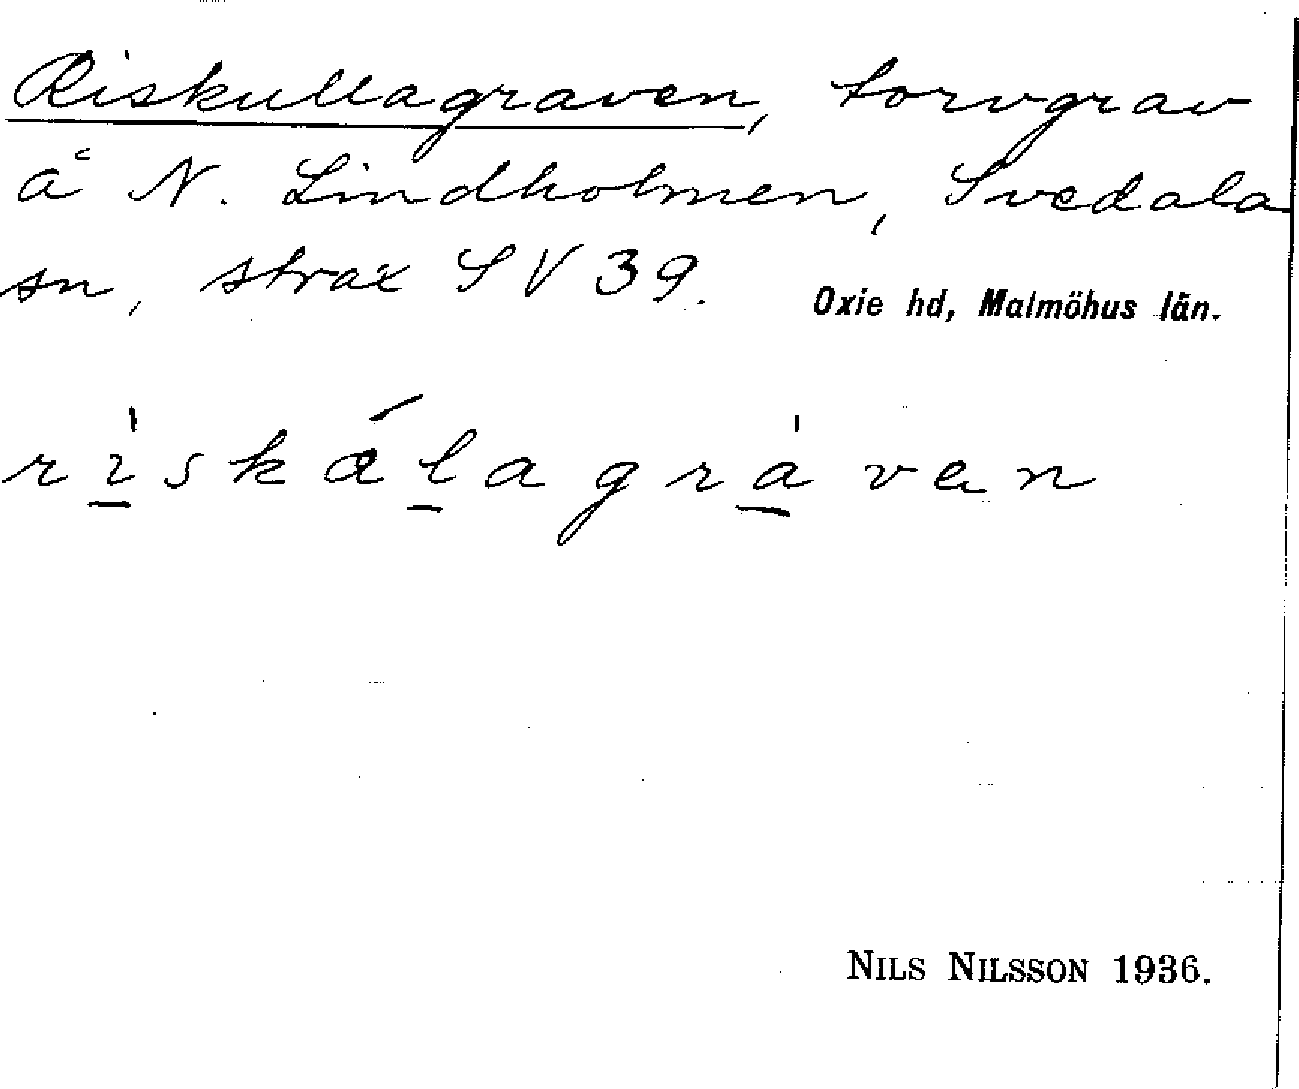 Riskullagraven, torvgrav
å N. Lindholmen, Svedala
sn, strax SV 39. Oxie hd, Malmöhus län.
NILS NILSSON 1936.